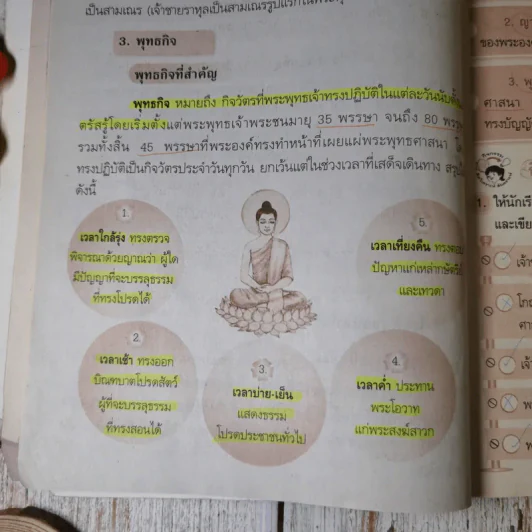 เป็นสามเณร (เจ้าชายราหุลเป็นสามเณรรูปแรกใน
3. พุทธกิจ
พุทธกิจที่สำคัญ
พุทธกิจ หมายถึง กิจวัตรที่พระพุทธเจ้าทรงปฏิบัติในแต่ละวันนับตั้ง
ตรัสรู้โดยเริ่มตั้งแต่พระพุทธเจ้าพระชนมายุ 35 พรรษา จนถึง 80
รวมทั้งสิ้น 45 พรรษาที่พระองค์ทรงทำหน้าที่เผยแผ่พระพุทธศาสนา
ทรงปฏิบัติเป็นกิจวัตรประจำวันทุกวัน ยกเว้นแต่ในช่วงเวลาที่เสด็จเดินทาง
ดังนี้
1.
เวลาใกล้รุ่ง ทรงตรวจ
พิจารณาด้วยญาณว่า ผู้ใด
มีปัญญาที่จะบรรลุธรรม
ที่ทรงโปรดได้
2.
เวลาเช้า ทรงออก
บิณฑบาตโปรดสัตว์
ผู้ที่จะบรรลุธรรม
ที่ทรงสอนได้
3.
เวลาบ่าย-เย็น
แสดงธรรม
โปรดประชาชนทั่วไป
4.
เวลาค่ำ ประทาน
พระโอวาท
แก่พระสงฆ์สาวก
5.
เวลาเที่ยงคืน ทรง
ปัญหาแก่เหล่า
และเทวดา
2.
ของพระองค์
3.
ศาสนา
1. ให้นักเรี
และเขีย
เจ้า
เจ้